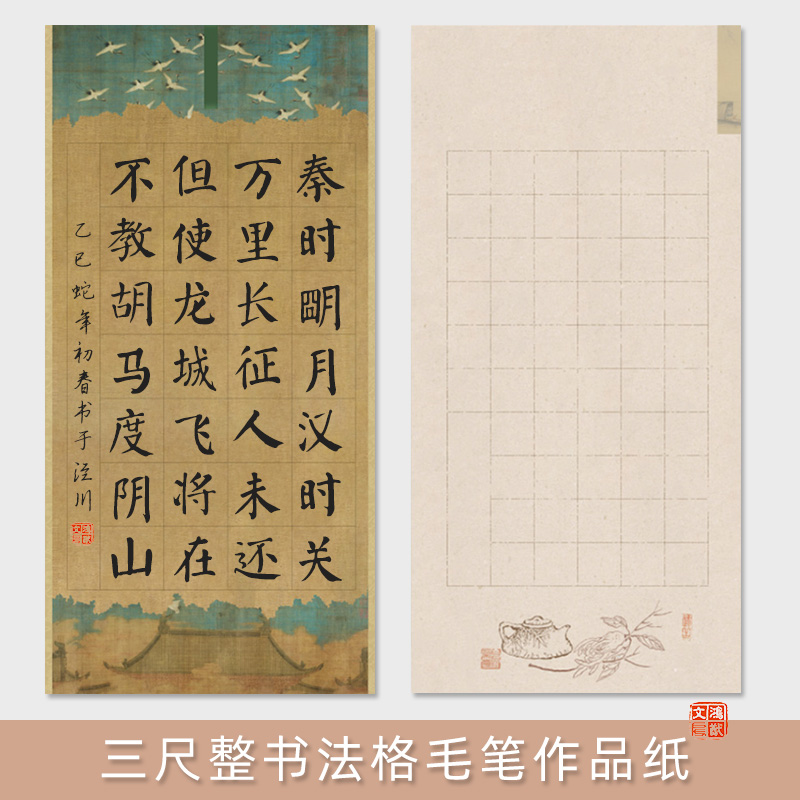 秦时朙月汉时关
万里长征人未还
但使龙城飞将在
不教胡马度阴山
乙巳蛇年初春书于泾川
三尺整书法格毛笔作品纸